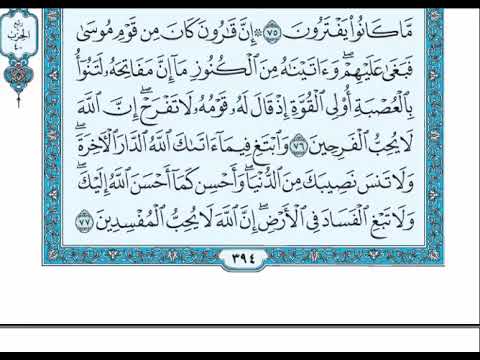 مَّا كَانُوا۟ يَفْتَرُونَ ٧٥ ۞ إِنَّ قَٰرُونَ كَانَ مِن قَوْمِ مُوسَىٰ
فَبَغَىٰ عَلَيْهِمْ ۖ وَءَاتَيْنَٰهُ مِنَ ٱلْكُنُوزِ مَآ إِنَّ مَفَاتِحَهُۥ لَتَنُوٓأُ
بِٱلْعُصْبَةِ أُو۟لِى ٱلْقُوَّةِ إِذْ قَالَ لَهُۥ قَوْمُهُۥ لَا تَفْرَحْ ۖ إِنَّ ٱللَّهَ
لَا يُحِبُّ ٱلْفَرِحِينَ ٧٦ وَٱبْتَغِ فِيمَآ ءَاتَىٰكَ ٱللَّهُ ٱلدَّارَ ٱلْءَاخِرَةَ ۖ
وَلَا تَنسَ نَصِيبَكَ مِنَ ٱلدُّنْيَا ۖ وَأَحْسِن كَمَآ أَحْسَنَ ٱللَّهُ إِلَيْكَ ۖ
وَلَا تَبْغِ ٱلْفَسَادَ فِى ٱلْأَرْضِ ۖ إِنَّ ٱللَّهَ لَا يُحِبُّ ٱلْمُفْسِدِينَ ٧٧
٣٩٤
ربع
الحزب
٤٠